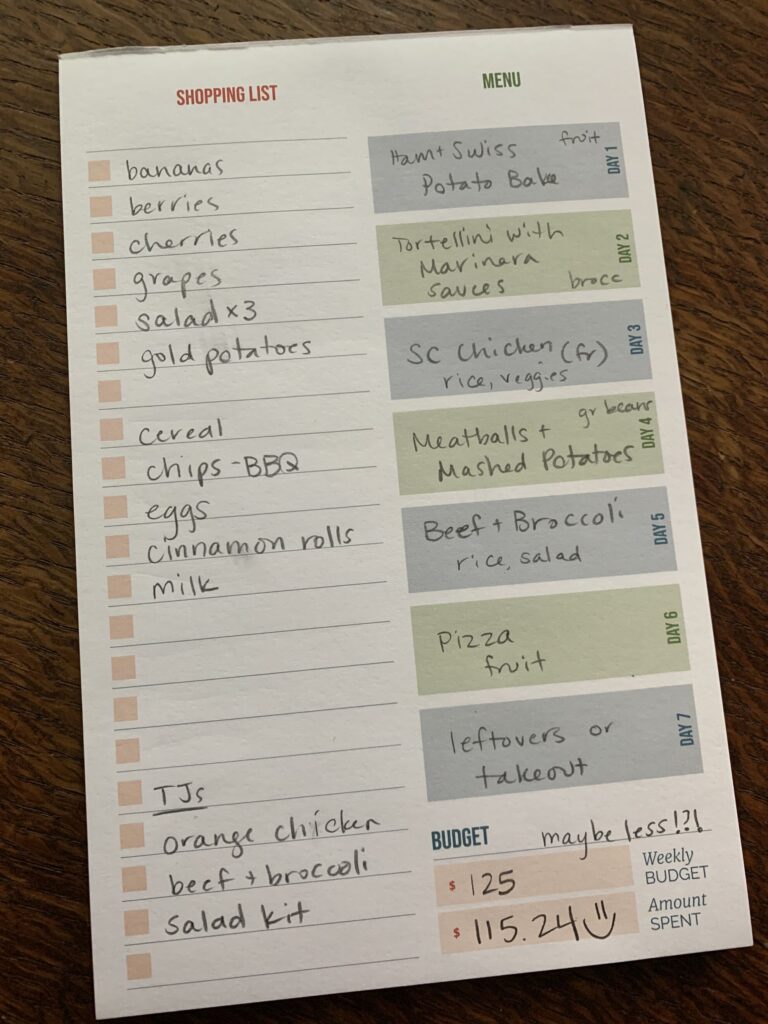 SHOPPING LIST
bananas
berries
cherries
grapes
salad x3
gold potatoes
cereal
chips - BBQ
eggs
cinnamon rolls
milk
TJs
orange chicken
beef + broccoli
salad kit
MENU
Ham + Swiss fruit
Potato Bake
DAY 1
Tortellini with
Marinara
sauces brocc
DAY 2
SC Chicken (fr)
rice, veggies
DAY 3
gr beans
Meatballs +
Mashed Potatoes
DAY 4
Beef + Broccoli
rice, salad
DAY 5
Pizza
fruit
DAY 6
leftovers or
takeout
DAY 7
BUDGET maybe less!?!
$ 125 Weekly BUDGET
$ 115.24 Amount SPENT